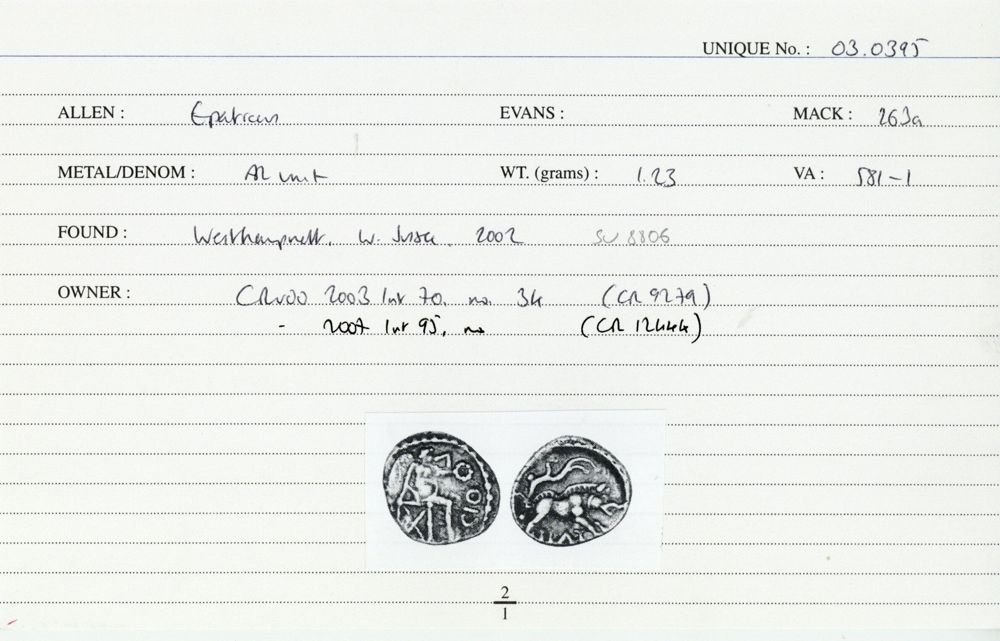 UNIQUE No. : 03.0395
ALLEN : Epaticcus EVANS : MACK : 263a
METAL/DENOM : AR unit WT. (grams) : 1.23 VA : 581-1
FOUND : Westhampnett, W. Sussex. 2002 SU 8806
OWNER : 2003 70, no. 34 (CR 9279)
- 2007 95, no (CR 12444)
2
1